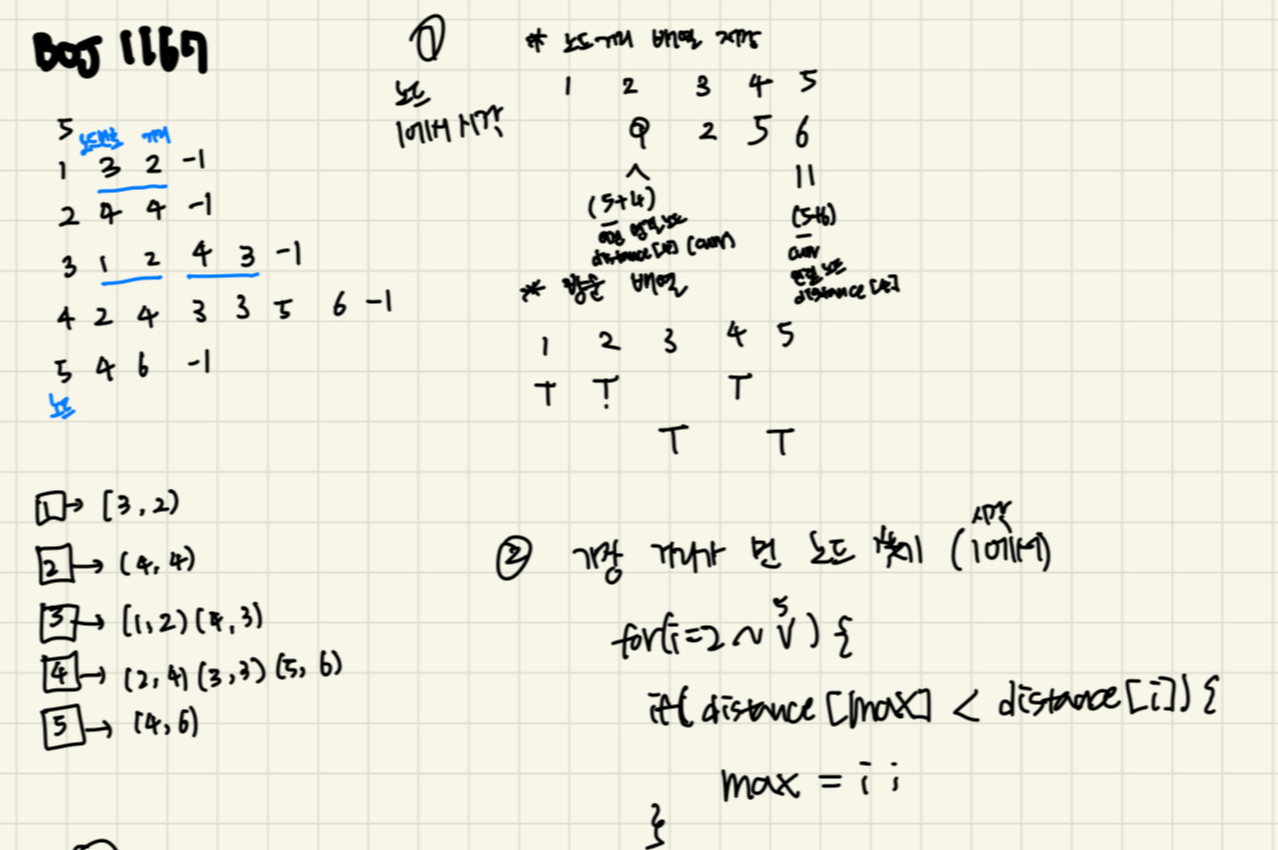 BOJ 1167
5
노드번호 거리
1 3 2 -1
2 4 4 -1
3 1 2 4 3 -1
4 2 4 3 3 5 6 -1
5 4 6 -1
노드
1 → (3,2)
2 → (4,4)
3 → (1,2) (4,3)
4 → (2,4) (3,3) (5,6)
5 → (4,6)
①
노드
1에서 시작
* 노드거리 배열 저장
1 2 3 4 5
9 2 5 6
11
(5+4)
연결노드
distance[4] (curr)
(5+6)
curr
연결노드
distance[4]
* 방문 배열
1 2 3 4 5
T T T
T T
② 가장 거리가 먼 노드 찾기 (1에서)
시작
5
for(i=2~V) {
if(distance[max] < distance[i]) {
max = i;
}